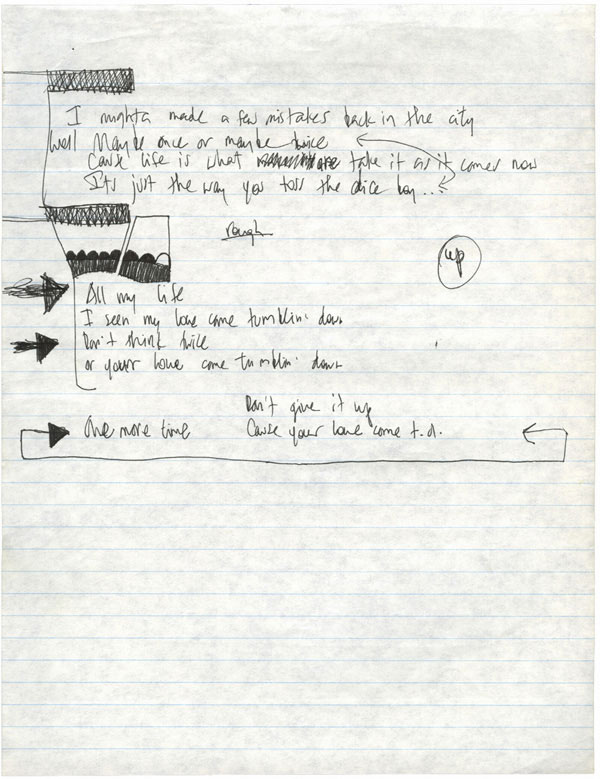 I mighta made a few mistakes back in the city
Well Maybe once or maybe twice
Cause life is what take it as it comes now
Its just the way you toss the dice boy...
rough
up
All my life
I seen my love come tumblin' down
Don't think twice
or your love come tumblin' down
Don't give it up
One more time Cause your love come t.d.